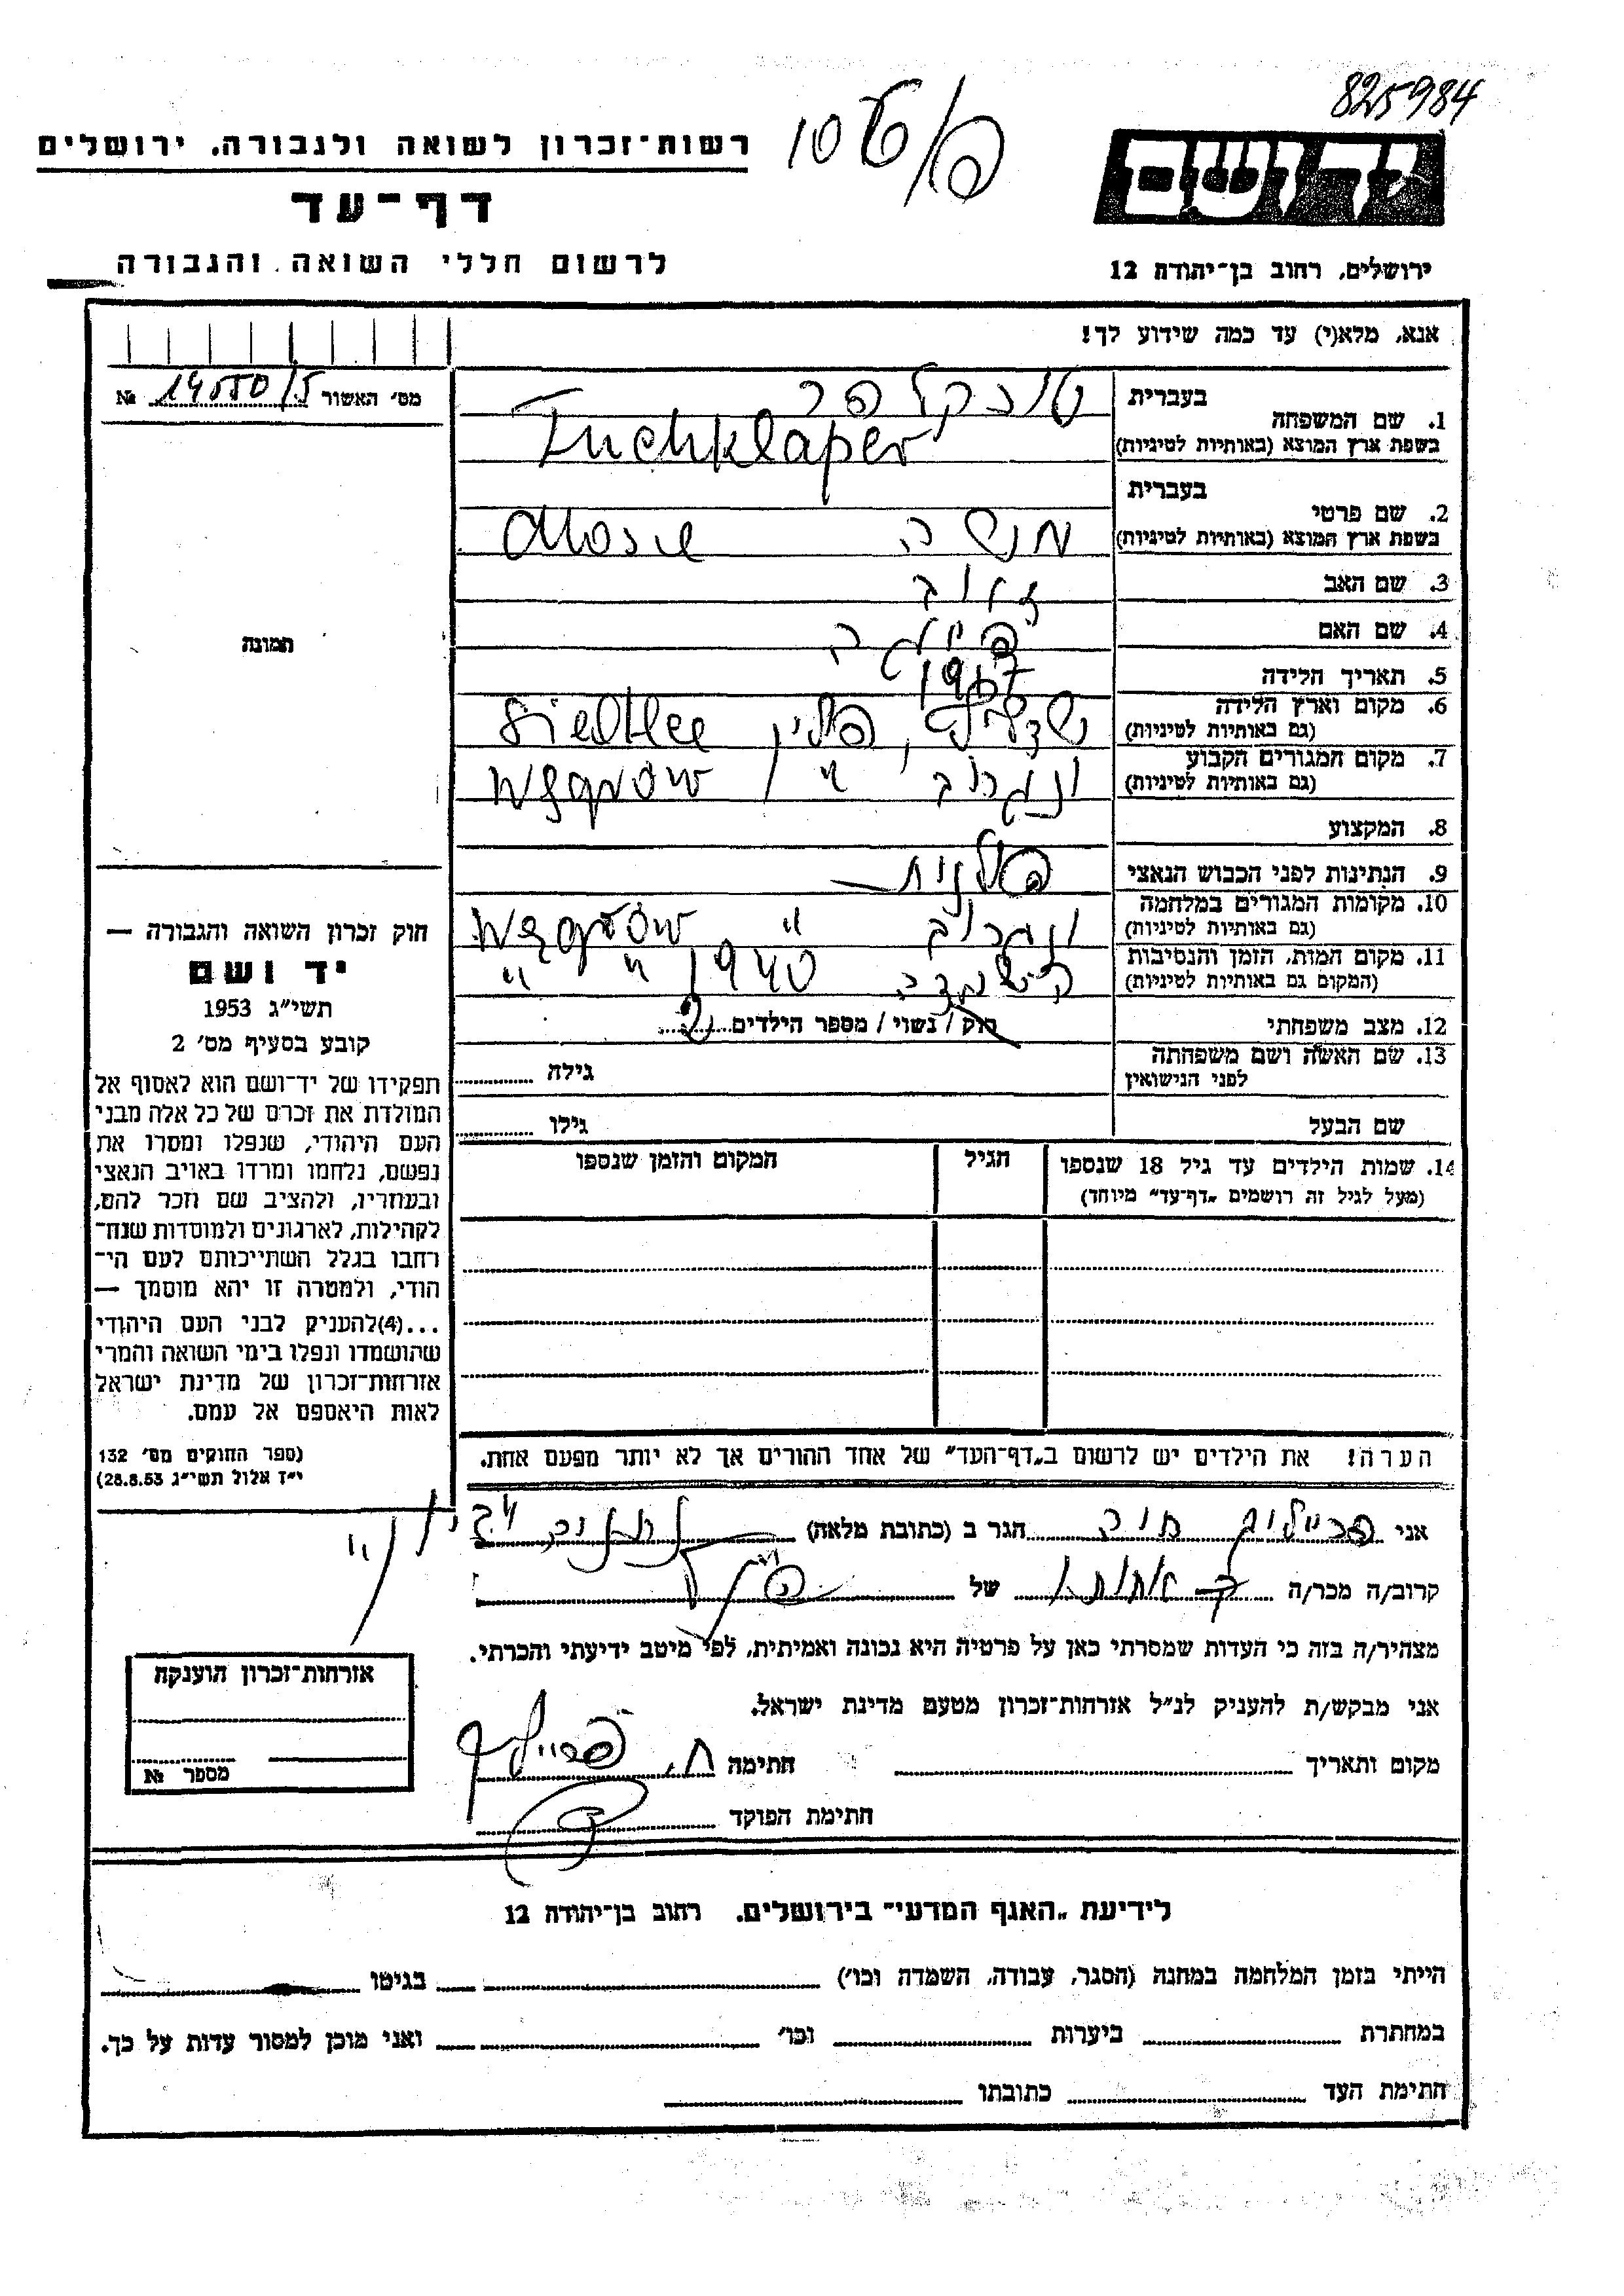 825984
רשות־זכרון לשואה ולגבורה, ירושלים
דף־עד
לרשום חללי השואה והגבורה
ירושלים, רחוב בן־יהודה 12
אנא, מלא(י) עד כמה שידוע לך!
מס' האשור 19550/5 №
1. שם המשפחה
בעברית טוכקלפר
בשפת ארץ המוצא (באותיות לטיניות) Tuchklaper
2. שם פרטי
בעברית
בשפת ארץ המוצא (באותיות לטיניות) משה Mosie
3. שם האב
4. שם האם
5. תאריך הלידה
6. מקום וארץ הלידה
(גם באותיות לטיניות) פולין Siedlce
7. מקום המגורים הקבוע
(גם באותיות לטיניות) ונגרוב " Węgrów
8. המקצוע
9. הנתינות לפני הכבוש הנאצי פולנית
10. מקומות המגורים במלחמה
(גם באותיות לטיניות) ונגרוב " Węgrów
11. מקום המות, הזמן והנסיבות
(המקום גם באותיות לטיניות) 1940 " "
12. מצב משפחתי רוק / נשוי / מספר הילדים 2
13. שם האשה ושם משפחתה
לפני הנישואין גילה
שם הבעל גילו
14. שמות הילדים עד גיל 18 שנספו
(מעל לגיל זה רושמים „דף־עד" מיוחד)
הגיל
המקום והזמן שנספו
הערה! את הילדים יש לרשום ב„דף־העד" של אחד ההורים אך לא יותר מפעם אחת.
תמונה
חוק זכרון השואה והגבורה —
יד ושם
תשי"ג 1953
קובע בסעיף מס' 2
תפקידו של יד־ושם הוא לאסוף אל
המולדת את זכרם של כל אלה מבני
העם היהודי, שנפלו ומסרו את
נפשם, נלחמו ומרדו באויב הנאצי
ובעוזריו, ולהציב שם וזכר להם,
לקהילות, לארגונים ולמוסדות שנח־
רחבו בגלל השתייכותם לעם הי־
הודי, ולמטרה זו יהא מוסמך —
...(4)להעניק לבני העם היהודי
שהושמדו ונפלו בימי השואה והמרי
אזרחות־זכרון של מדינת ישראל
לאות היאספם אל עמם.
(ספר החוקים מס' 132
י"ז אלול תשי"ג 28.8.53)
אני הגר ב (כתובת מלאה)
קרוב/ה מכר/ה של
מצהיר/ה בזה כי העדות שמסרתי כאן על פרטיה היא נכונה ואמיתית, לפי מיטב ידיעתי והכרתי.
אני מבקש/ת להעניק לנ"ל אזרחות־זכרון מטעם מדינת ישראל.
מקום ותאריך חתימה
חתימת הפוקד
אזרחות־זכרון הוענקה
מספר №
לידיעת „האגף המדעי" בירושלים, רחוב בן־יהודה 12
הייתי בזמן המלחמה במחנה (הסגר, עבודה, השמדה וכו') בגיטו
במחתרת ביערות וכו' ואני מוכן למסור עדות על כך.
חתימת העד כתובתו